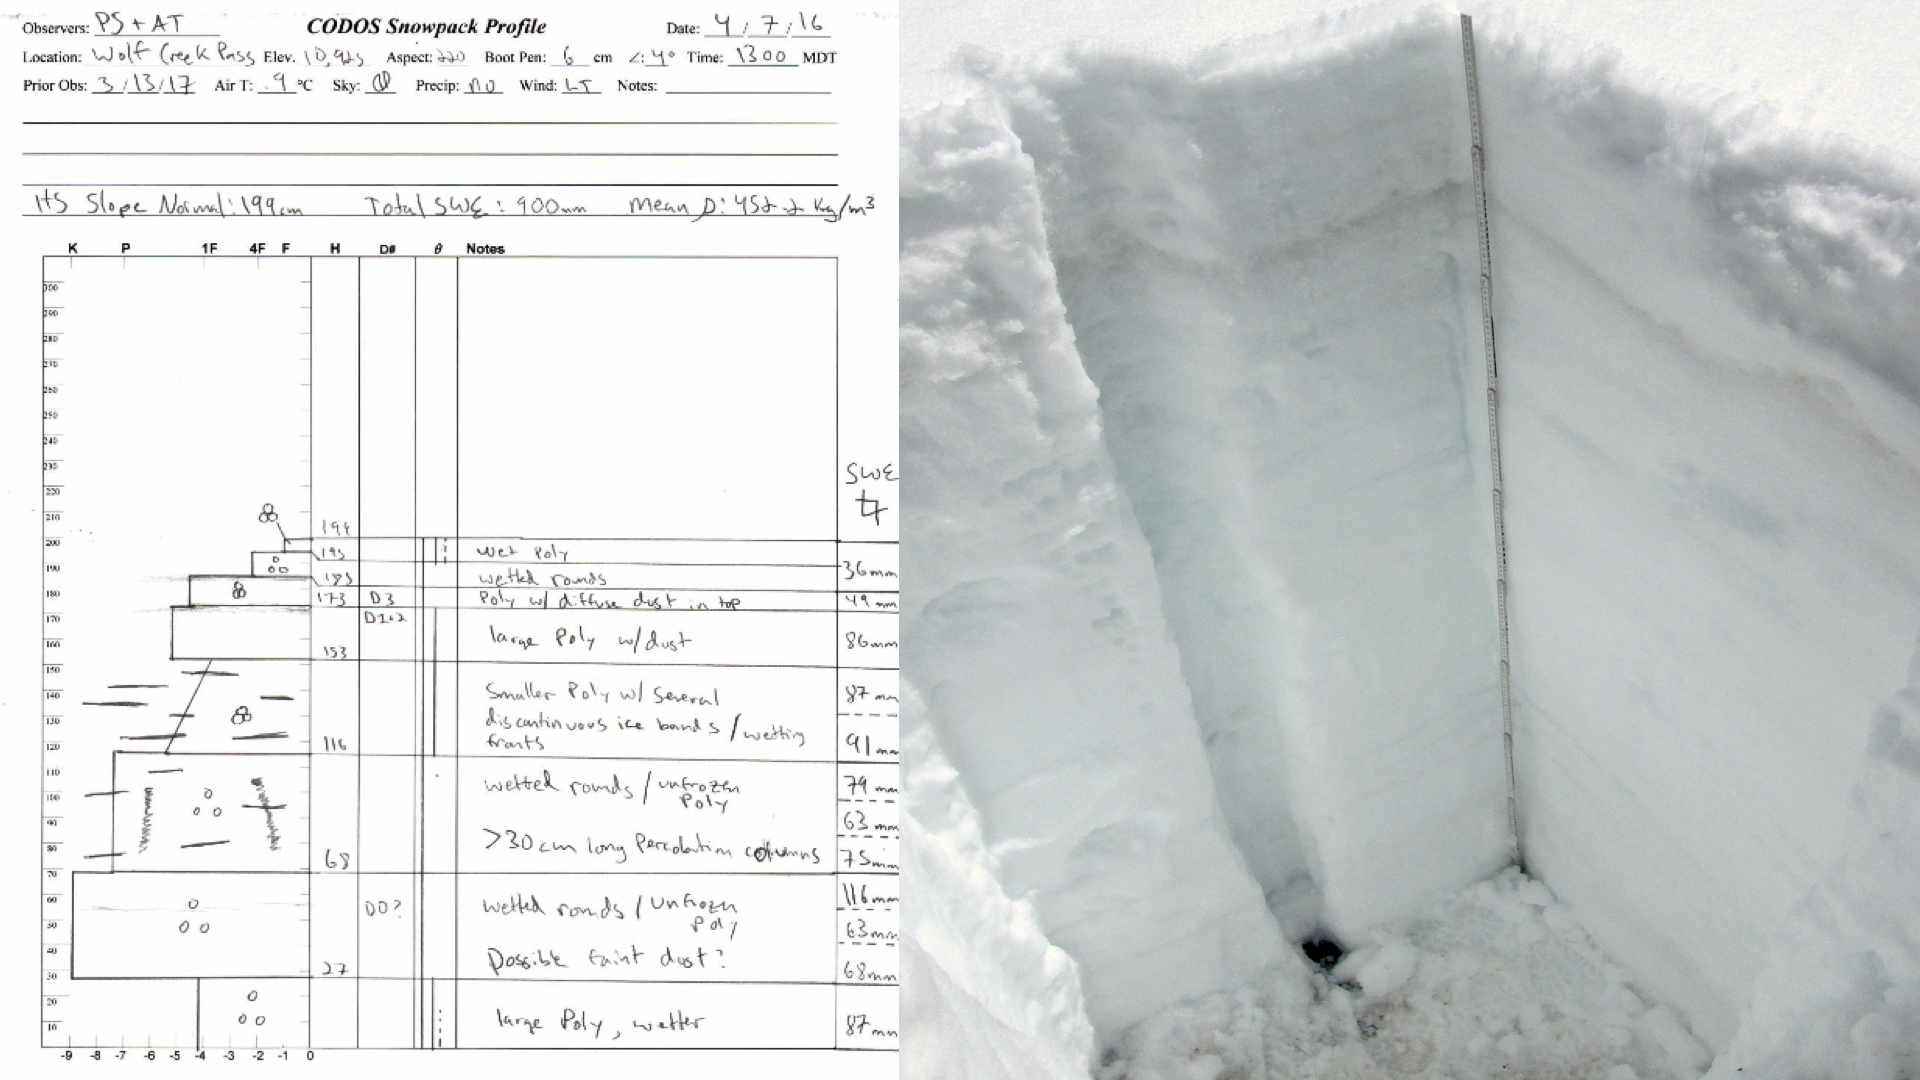 Observers: PS + AT CODOS Snowpack Profile Date: 4 / 7 / 16
Location: Wolf Creek Pass Elev. 10,925 Aspect: 220 Boot Pen: 6 cm ∠: 4° Time: 1300 MDT
Prior Obs: 3 / 13 / 17 Air T: .9 °C Sky: Precip: no Wind: LT Notes:
HS Slope Normal: 199cm Total SWE: 900mm Mean D: 452.2 Kg/m³
K P 1F 4F F H D# θ Notes
300
290
280
270
260
250
240
230
SWE
220
210
199
200
195 wet Poly
190 36mm
185 wetted rounds
180 173 D3 Poly w/ diffuse dust in top 49 mm
170 D1+2
large Poly w/dust 86mm
160 153
150
140 Smaller Poly w/ Several 87 mm
130 discontinuous ice bands / wetting
120 116 fronts 91mm
110 wetted rounds / unfrozen 79 mm
100 Poly
90 63 mm
80 68 >30 cm long Percolation columns 75mm
70
60 DO? wetted rounds / Unfrozen 116mm
50 Poly 63mm
40 Possible faint dust?
30 27 68mm
20
10 large Poly, wetter 87mm
-9 -8 -7 -6 -5 -4 -3 -2 -1 0